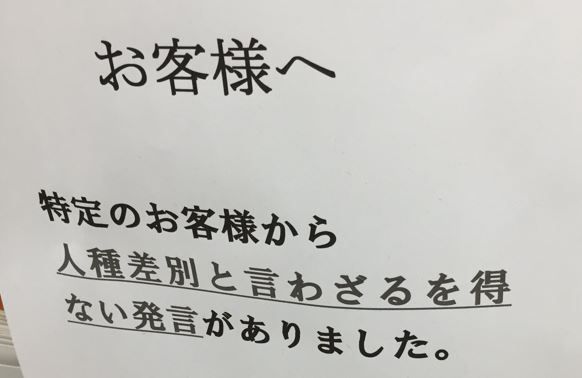 お客様へ
特定のお客様から
人種差別と言わざるを得
ない発言がありました。